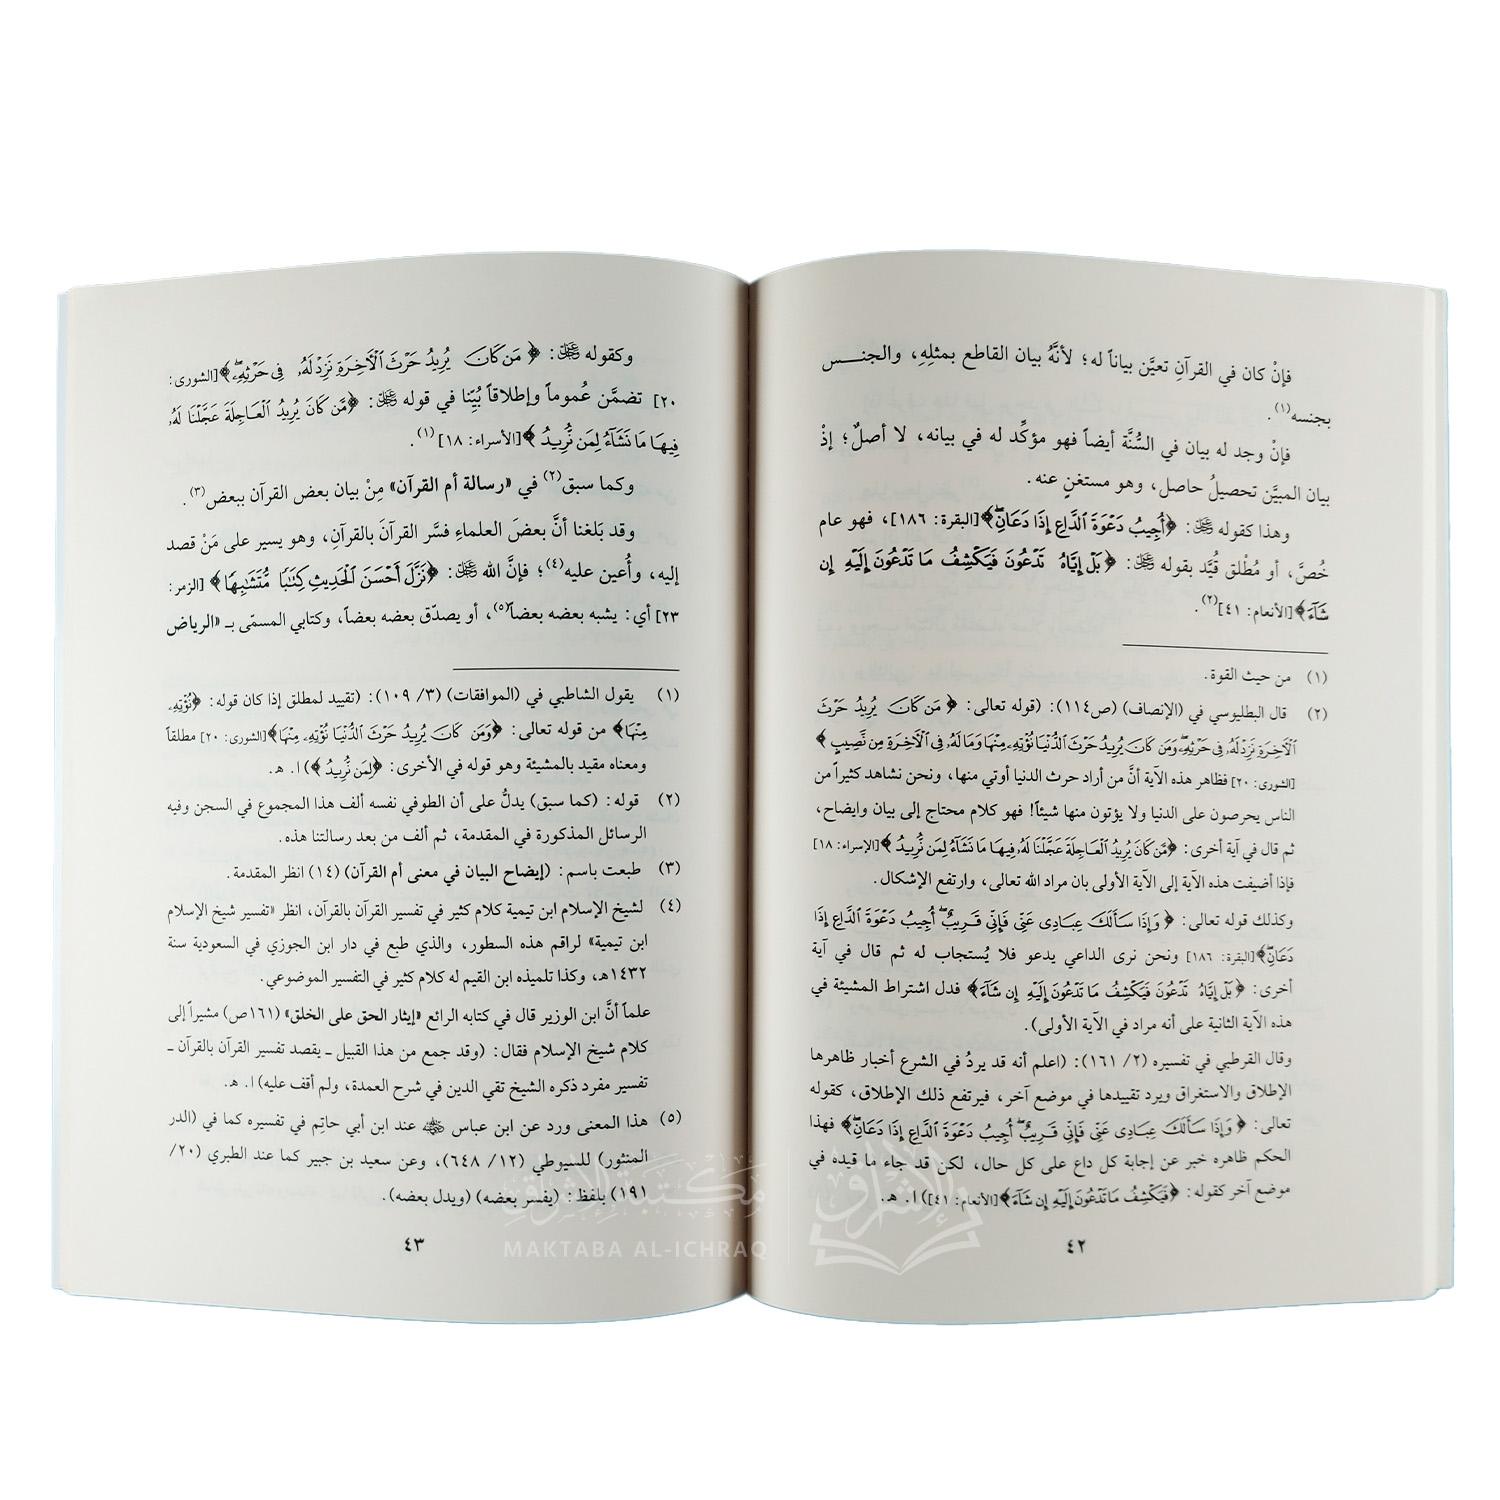 فإنْ كان في القرآنِ تعيَّن بياناً له؛ لأنَّهُ بيان القاطع بمثلِهِ، والجنس
بجنسه(١).
فإنْ وجد له بيان في السُّنَّة أيضاً فهو مؤكِّد له في بيانه، لا أصلٌ؛ إذْ
بيان المبيَّن تحصيلُ حاصل، وهو مستغنٍ عنه.
وهذا كقوله ﷻ: ﴿أُجِيبُ دَعْوَةَ الدَّاعِ إِذَا دَعَانِ﴾[البقرة: ١٨٦]، فهو عام
خُصَّ، أو مُطْلق قُيِّد بقوله ﷻ: ﴿بَلْ إِيَّاهُ تَدْعُونَ فَيَكْشِفُ مَا تَدْعُونَ إِلَيْهِ إِن
شَآءَ﴾[الأنعام: ٤١](٢).
(١) من حيث القوة.
(٢) قال البطليوسي في (الإنصاف) (ص١١٤): (قوله تعالى: ﴿مَن كَانَ يُرِيدُ حَرْثَ
الْآخِرَةِ نَزِدْ لَهُ فِي حَرْثِهِ وَمَن كَانَ يُرِيدُ حَرْثَ الدُّنْيَا نُؤْتِهِ مِنْهَا وَمَا لَهُ فِي الْآخِرَةِ مِن نَّصِيبٍ﴾
[الشورى: ٢٠] فظاهر هذه الآية أنَّ من أراد حرث الدنيا أوتي منها، ونحن نشاهد كثيراً من
الناس يحرصون على الدنيا ولا يؤتون منها شيئاً! فهو كلام محتاج إلى بيان وايضاح،
ثم قال في آية أخرى: ﴿مَّن كَانَ يُرِيدُ الْعَاجِلَةَ عَجَّلْنَا لَهُ فِيهَا مَا نَشَآءُ لِمَن نُّرِيدُ﴾[الإسراء: ١٨]
فإذا أضيفت هذه الآية إلى الآية الأولى بان مراد الله تعالى، وارتفع الإشكال.
وكذلك قوله تعالى: ﴿وَإِذَا سَأَلَكَ عِبَادِي عَنِّي فَإِنِّي قَرِيبٌ أُجِيبُ دَعْوَةَ الدَّاعِ إِذَا
دَعَانِ﴾[البقرة: ١٨٦] ونحن نرى الداعي يدعو فلا يُستجاب له ثم قال في آية
أخرى: ﴿بَلْ إِيَّاهُ تَدْعُونَ فَيَكْشِفُ مَا تَدْعُونَ إِلَيْهِ إِن شَآءَ﴾ فدل اشتراط المشيئة في
هذه الآية الثانية على أنه مراد في الآية الأولى).
وقال القرطبي في تفسيره (٢/ ١٦١): (اعلم أنه قد يردُ في الشرع أخبار ظاهرها
الإطلاق والاستغراق ويرد تقييدها في موضع آخر، فيرتفع ذلك الإطلاق، كقوله
تعالى: ﴿وَإِذَا سَأَلَكَ عِبَادِي عَنِّي فَإِنِّي قَرِيبٌ أُجِيبُ دَعْوَةَ الدَّاعِ إِذَا دَعَانِ﴾ فهذا
الحكم ظاهره خبر عن إجابة كل داع على كل حال، لكن قد جاء ما قيده في
موضع آخر كقوله: ﴿فَيَكْشِفُ مَا تَدْعُونَ إِلَيْهِ إِن شَآءَ﴾[الأنعام: ٤١]) ا. هـ.
٤٢
وكقوله ﷻ: ﴿مَن كَانَ يُرِيدُ حَرْثَ الْآخِرَةِ نَزِدْ لَهُ فِي حَرْثِهِ﴾[الشورى:
٢٠] تضمَّن عُموماً وإطلاقاً بُيِّنا في قوله ﷻ: ﴿مَّن كَانَ يُرِيدُ الْعَاجِلَةَ عَجَّلْنَا لَهُ
فِيهَا مَا نَشَآءُ لِمَن نُّرِيدُ﴾[الأسراء: ١٨](١).
وكما سبق(٢) في «رسالة أم القرآن» مِنْ بيان بعض القرآن ببعض(٣).
وقد بَلغنا أنَّ بعضَ العلماءِ فسَّر القرآنَ بالقرآنِ، وهو يسير على مَنْ قصد
إليه، وأُعين عليه(٤)؛ فإنَّ الله ﷻ: ﴿نَزَّلَ أَحْسَنَ الْحَدِيثِ كِتَابًا مُّتَشَابِهًا﴾[الزمر:
٢٣] أي: يشبه بعضه بعضاً(٥)، أو يصدّق بعضه بعضاً، وكتابي المسمّى بـ «الرياض
(١) يقول الشاطبي في (الموافقات) (٣/ ١٠٩): (تقييد لمطلق إذا كان قوله: ﴿نُؤْتِهِ
مِنْهَا﴾ من قوله تعالى: ﴿وَمَن كَانَ يُرِيدُ حَرْثَ الدُّنْيَا نُؤْتِهِ مِنْهَا﴾[الشورى: ٢٠] مطلقاً
ومعناه مقيد بالمشيئة وهو قوله في الأخرى: ﴿لِمَن نُّرِيدُ﴾) ا. هـ.
(٢) قوله: (كما سبق) يدلُّ على أن الطوفي نفسه ألف هذا المجموع في السجن وفيه
الرسائل المذكورة في المقدمة، ثم ألف من بعد رسالتنا هذه.
(٣) طبعت باسم: (إيضاح البيان في معنى أم القرآن) (١٤) انظر المقدمة.
(٤) لشيخ الإسلام ابن تيمية كلام كثير في تفسير القرآن بالقرآن، انظر «تفسير شيخ الإسلام
ابن تيمية» لراقم هذه السطور، والذي طبع في دار ابن الجوزي في السعودية سنة
١٤٣٢هـ، وكذا تلميذه ابن القيم له كلام كثير في التفسير الموضوعي.
علماً أنَّ ابن الوزير قال في كتابه الرائع «إيثار الحق على الخلق» (ص١٦١) مشيراً إلى
كلام شيخ الإسلام فقال: (وقد جمع من هذا القبيل ـ يقصد تفسير القرآن بالقرآن ـ
تفسير مفرد ذكره الشيخ تقي الدين في شرح العمدة، ولم أقف عليه) ا. هـ.
(٥) هذا المعنى ورد عن ابن عباس عند ابن أبي حاتِم في تفسيره كما في (الدر
المنثور) للسيوطي (١٢/ ٦٤٨)، وعن سعيد بن جبير كما عند الطبري (٢٠/
١٩١) بلفظ: (يفسر بعضه) (ويدل بعضه).
٤٣
مكتبة الإشراق
MAKTABA AL-ICHRAQ
الإشراق